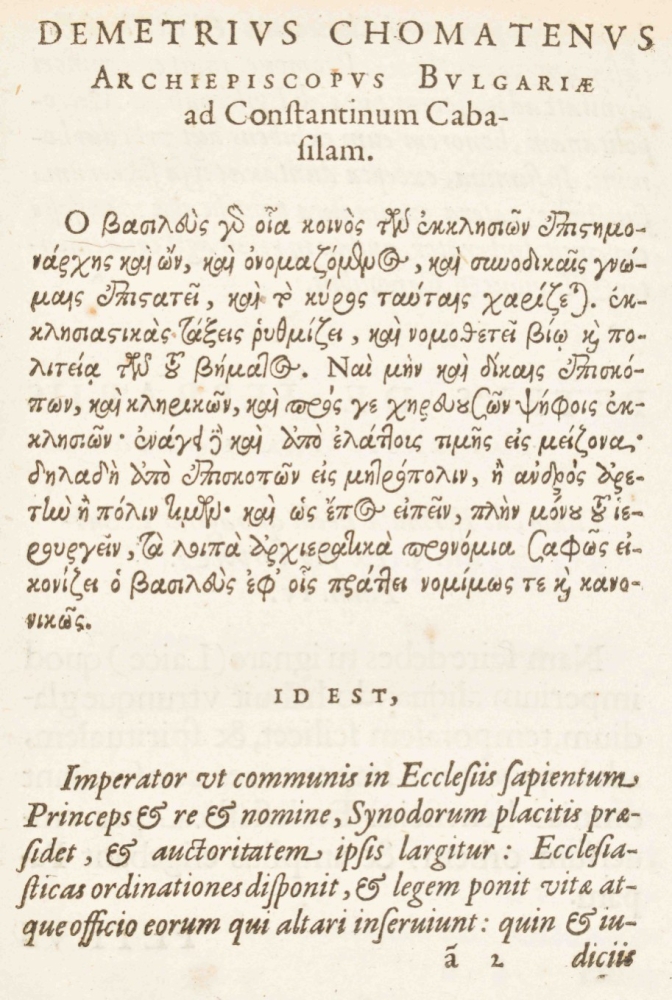 DEMETRIVS CHOMATENVS
ARCHIEPISCOPVS BVLGARIÆ
ad Conſtantinum Caba-
ſilam.
Ο βασιλεὺς γὸ οἷα κοινὸς τῶν ἐκκλησιῶν ἐπιστημο-
νάρχης καὶ ὢν, καὶ ὀνομαζόμενος, καὶ συνοδικαῖς γνώ-
μαις ἐπιστατεῖ, καὶ τὸ κύρος ταύταις χαρίζεται. ἐκ-
κλησιαστικὰς τάξεις ῥυθμίζει, καὶ νομοθετεῖ βίῳ καὶ πο-
λιτείᾳ τῶν τοῦ βήματος. Ναὶ μὴν καὶ δίκαις ἐπισκό-
πων, καὶ κληρικῶν, καὶ πρός γε χηρευουσῶν ψήφοις ἐκ-
κλησιῶν· ἀνάγει δὲ καὶ ἀπὸ ἐλάττοις τιμῆς εἰς μείζονα·
δηλαδὴ ἀπὸ ἐπισκοπῶν εἰς μητρόπολιν, ἢ ἀνδρὸς ἀρε-
τὴν ἢ πόλιν τιμῶν· καὶ ὡς ἔπος εἰπεῖν, πλὴν μόνου τοῦ ἱε-
ρουργεῖν, τὰ λοιπὰ ἀρχιερατικὰ προνόμια σαφῶς εἰ-
κονίζει ὁ βασιλεὺς ἐφ' οἷς πράττει νομίμως τε καὶ κανο-
νικῶς.
ID EST,
Imperator vt communis in Eccleſiis ſapientum
Princeps & re & nomine, Synodorum placitis præ-
ſidet, & auctoritatem ipſis largitur: Eccleſia-
ſticas ordinationes diſponit, & legem ponit vitæ at-
que officio eorum qui altari inſeruiunt: quin & iu-
ã 2 diciis